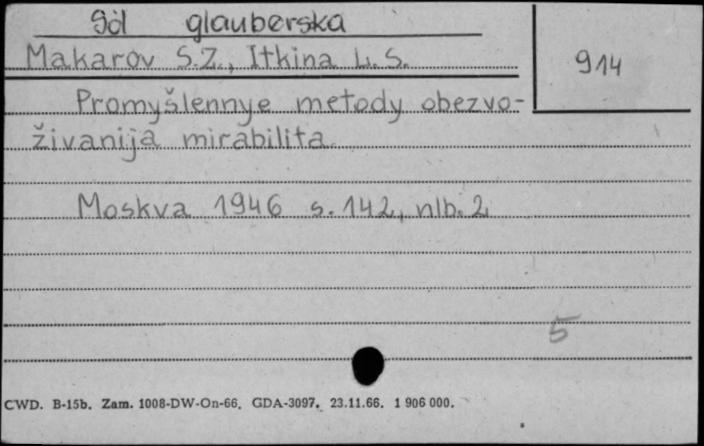 Sól glauberska
Makarov S.Z., Itkina L.S.
914
Promyšlennye metody obezvo-
živanija mirabilita
Moskva 1946 s. 142, nlb. 2
5
CWD. B-15b. Zam. 1008-DW-On-66. GDA-3097. 23.11.66. 1 906 000.